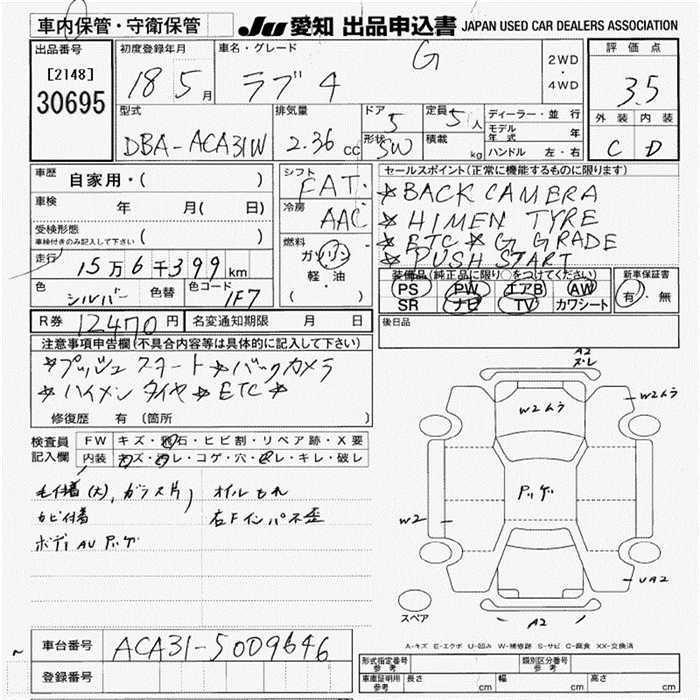 車内保管・守衛保管
JU 愛知 出品申込書 JAPAN USED CAR DEALERS ASSOCIATION
出品番号
[2148]
30695
初度登録年月
18 5月
車名・グレード
ラブ4 G
2WD
・
4WD
評価点
3.5
外装 内装
C D
型式
DBA-ACA31W
排気量
2.36 cc
ドア
5
形状
SW
定員
5人
積載
kg
ディーラー・並行
モデル年式 年
ハンドル 左・右
車歴
自家用・( )
車検 年 月( 日)
受検形態
車検付きのみ記入して下さい ( )
走行 15万6千399km
色 シルバー 色替 色コード 1F7
シフト
FAT
冷房
AAC
燃料
ガソリン
軽・油
( )
セールスポイント(正常に機能するものに限ります)
☆BACK CAMERA
☆HIMEN TYRE
☆ETC☆G GRADE
☆PUSH START
装備品(純正品に限り○をつけてください)
PS PW エアB AW
SR ナビ TV カワシート
新車保証書
有・無
R券 12470円 名変通知期限 月 日
後日品
注意事項申告欄(不具合内容等は具体的に記入して下さい)
☆プッシュスタート☆バックカメラ
☆ハイメンタイヤ☆ETC☆
修復歴 有(箇所 )
検査員
記入欄
FW キズ・飛石・ヒビ割・リペア跡・X要
内装 キズ・汚レ・コゲ・穴・ビレ・キレ・破レ
毛付着(大)、ガラス片、オイルもれ
カビ付着 右Fインパネ歪
ボディAUアッゲ
A2
ズレ
W2ムラ
W2ムラ
アッゲ
W2
UA2
A2
スペア
A-キズ E-エクボ U-凹み W-補修跡 S-サビ C-腐食 XX-交換済
車台番号 ACA31-5009646
登録番号
形式指定番号
参考
類別区分番号
参考
車庫証明用
参考
長さ cm 幅 cm 高さ cm